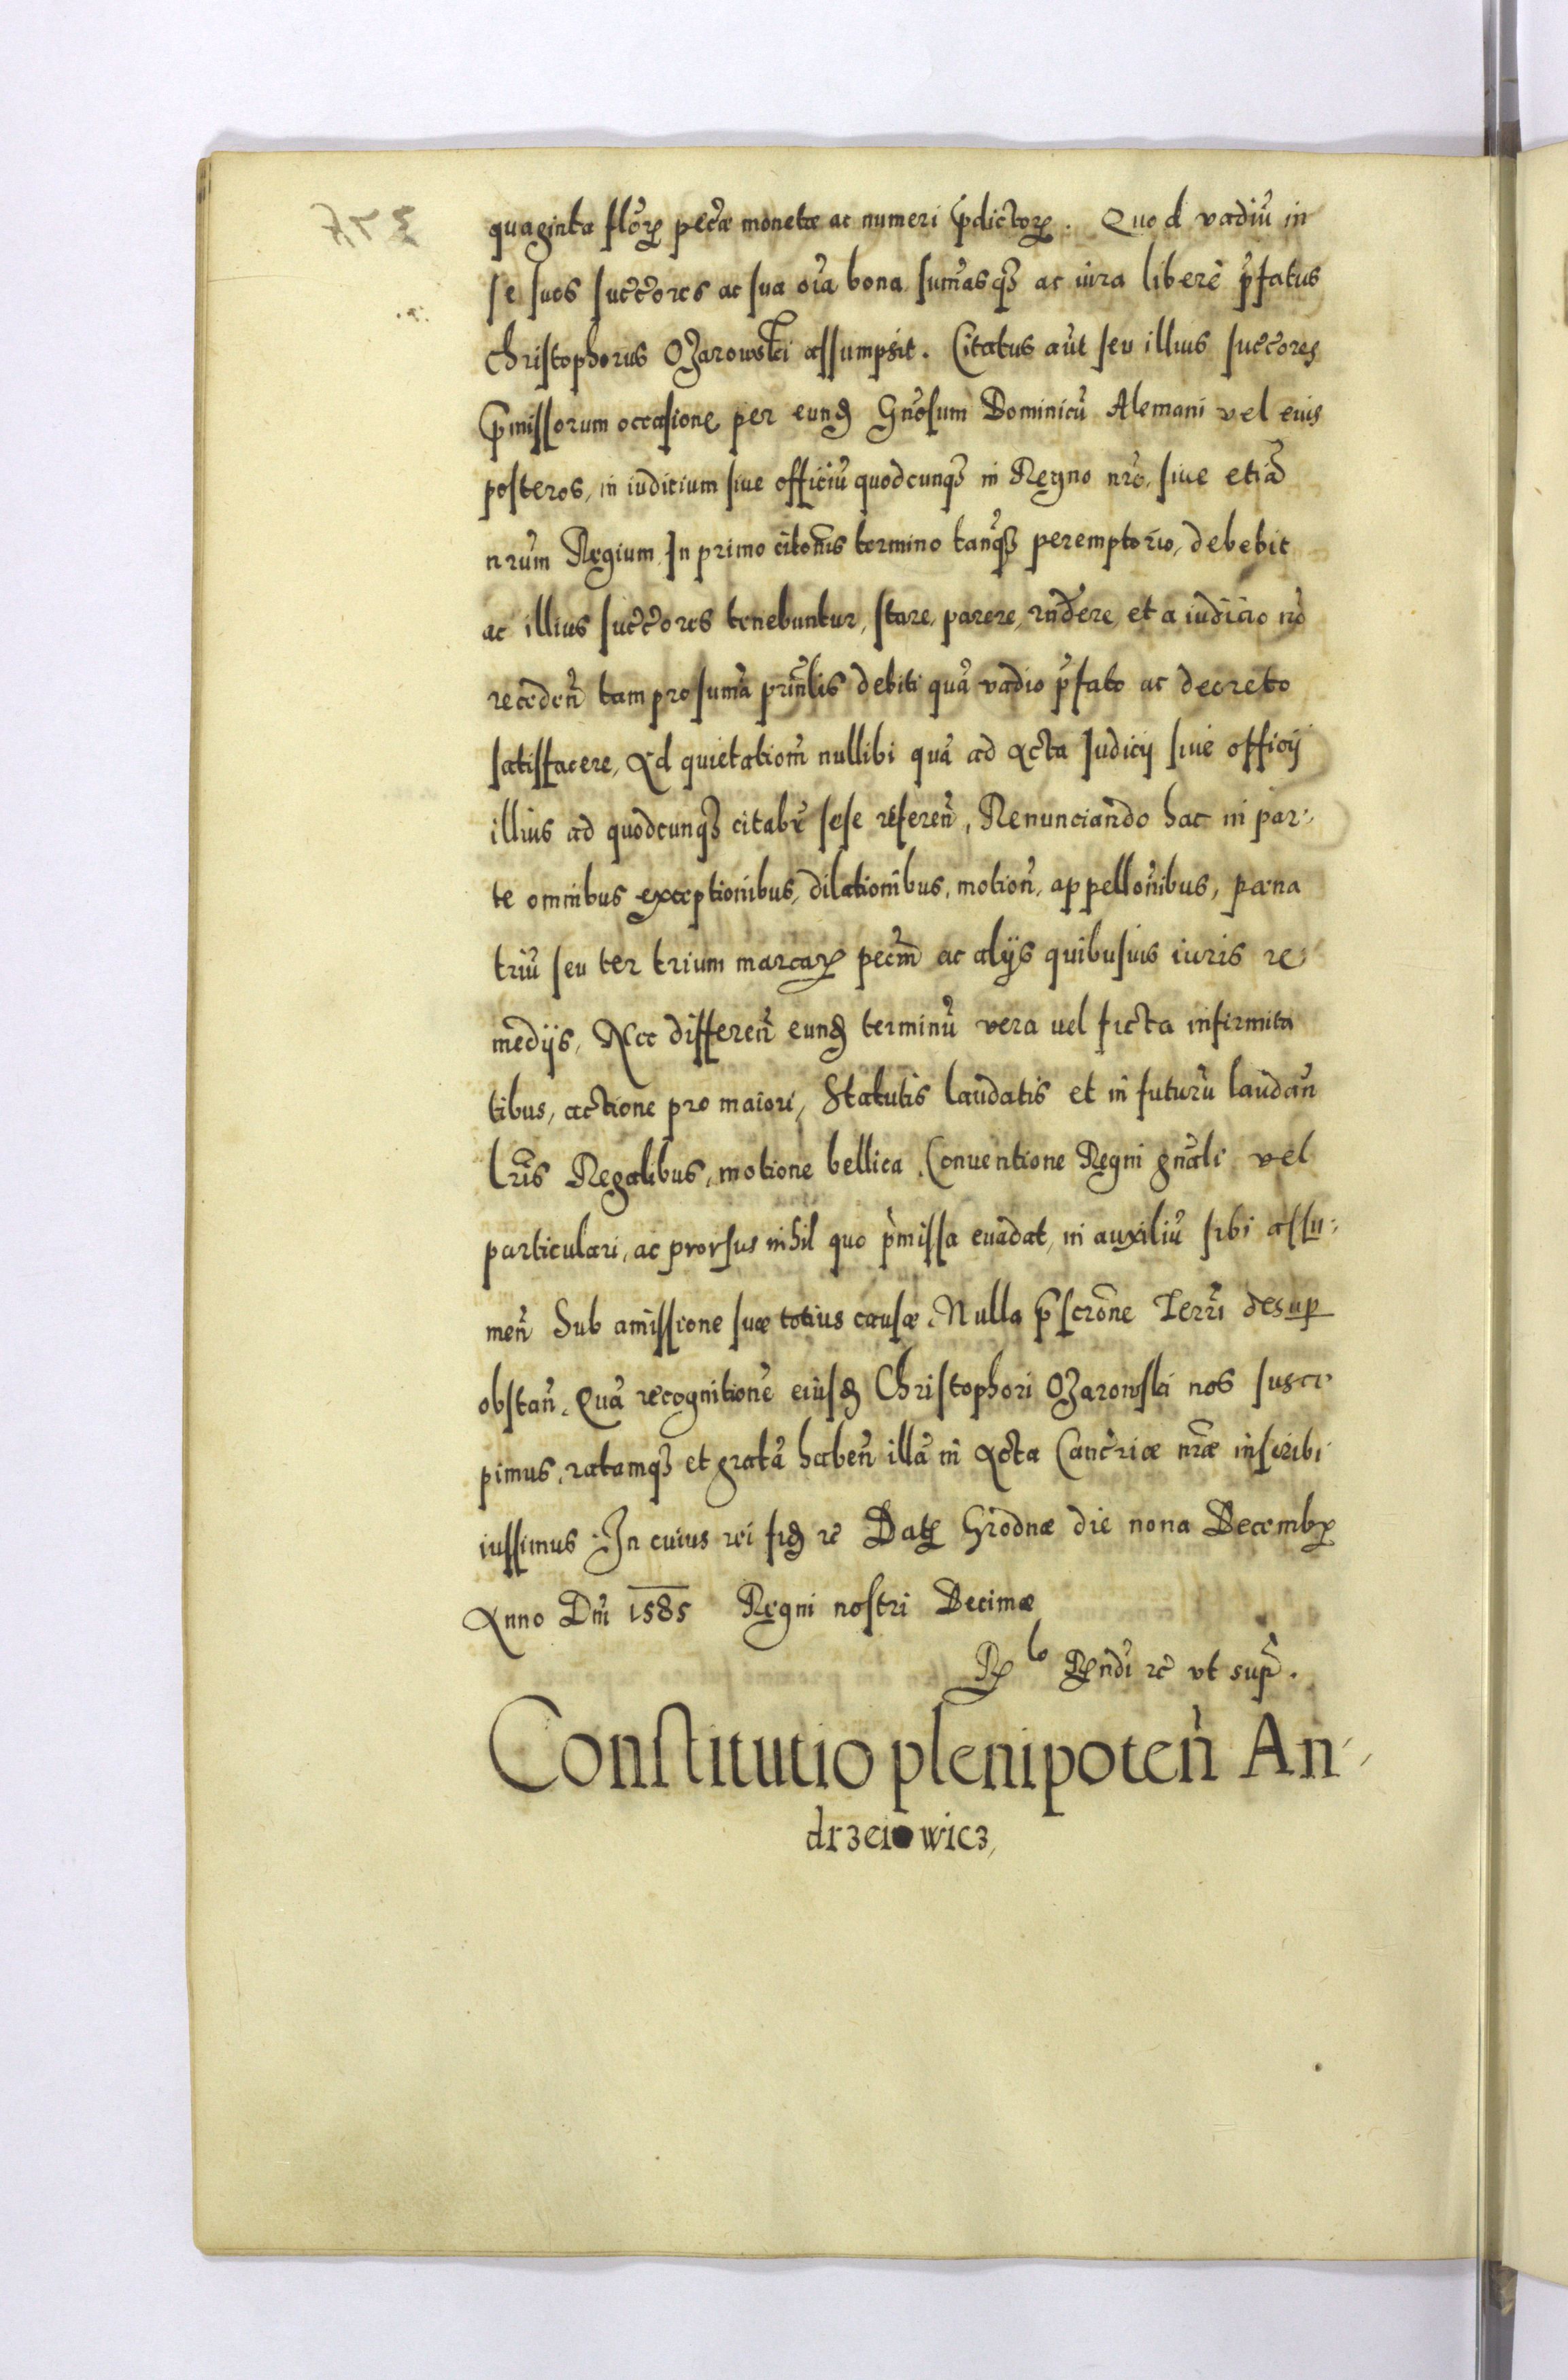 quaginta flor͂ꝝ pec̃æ monetæ ac numeri p̃dictorꝝ. Quod vadiũ in
se suos succ̃ores ac sua oĩa bona sum̃asqꝫ ac iura liberè p̃fatus
Christophorus Ożarowski assumpsit. Citatus aũt seu illius succ̃ores
p̃missorum occasione per eund̃ Gñosum Dominicũ Alemani vel eius
posteros, in iudicium siue officiũ quodcunqꝫ in Regno nr̃o, siue etiã
nr̃um Regium. In primo citõnis termino tanq̃ꝫ peremptorio, debebit
ac illius succ̃ores tenebuntur, stare, parere, rñdere, et a iudicio nõ
recedeñ tam pro sum̃a prĩnlis debiti quã vadio p̃fato ac decreto
satisfacere, Ad quietatiom̃ nullibi quã ad Acta Iudicij siue officij
illius ad quodcunqꝫ citabr̃ sese refereñ, Renunciando hac in par-
te omnibus exceptionibus, dilationibus, motioñ, appellõnibus, pæna
triũ seu ter trium marcarꝝ pecm̃ ac alijs quibusuis iuris re-
medijs, Nec differeñ eund̃ terminũ vera uel ficta infirmita
tibus, actione pro maiori, Statutis laudatis et in futurũ laudañ
Lr̃is Regalibus, motione bellica, Conuentione Regni gñali vel
particulari, ac prorsus nihil quo p̃missa euadat, in auxiliũ sibi assu-
meñ Sub amissione suæ totius causæ. Nulla p̃scrõne Terrĩ desuꝑ
obstañ. Quã recognitionẽ eiusd̃ Christophori Ożarowski nos susce-
pimus, ratamqꝫ et gratã habeñ illã in Acta Canc̃riæ nr̃æ inscribi
iussimus. In cuius rei fid̃ ꝛc̃ Datꝫ Grodnæ die nona Decembꝝ
Anno Dñi 1585 Regni nostri Decimæ
R̃lo Rñdi ꝛc̃ vt supr̃.
Constitutio plenipoteñ An-
drzeiowicz